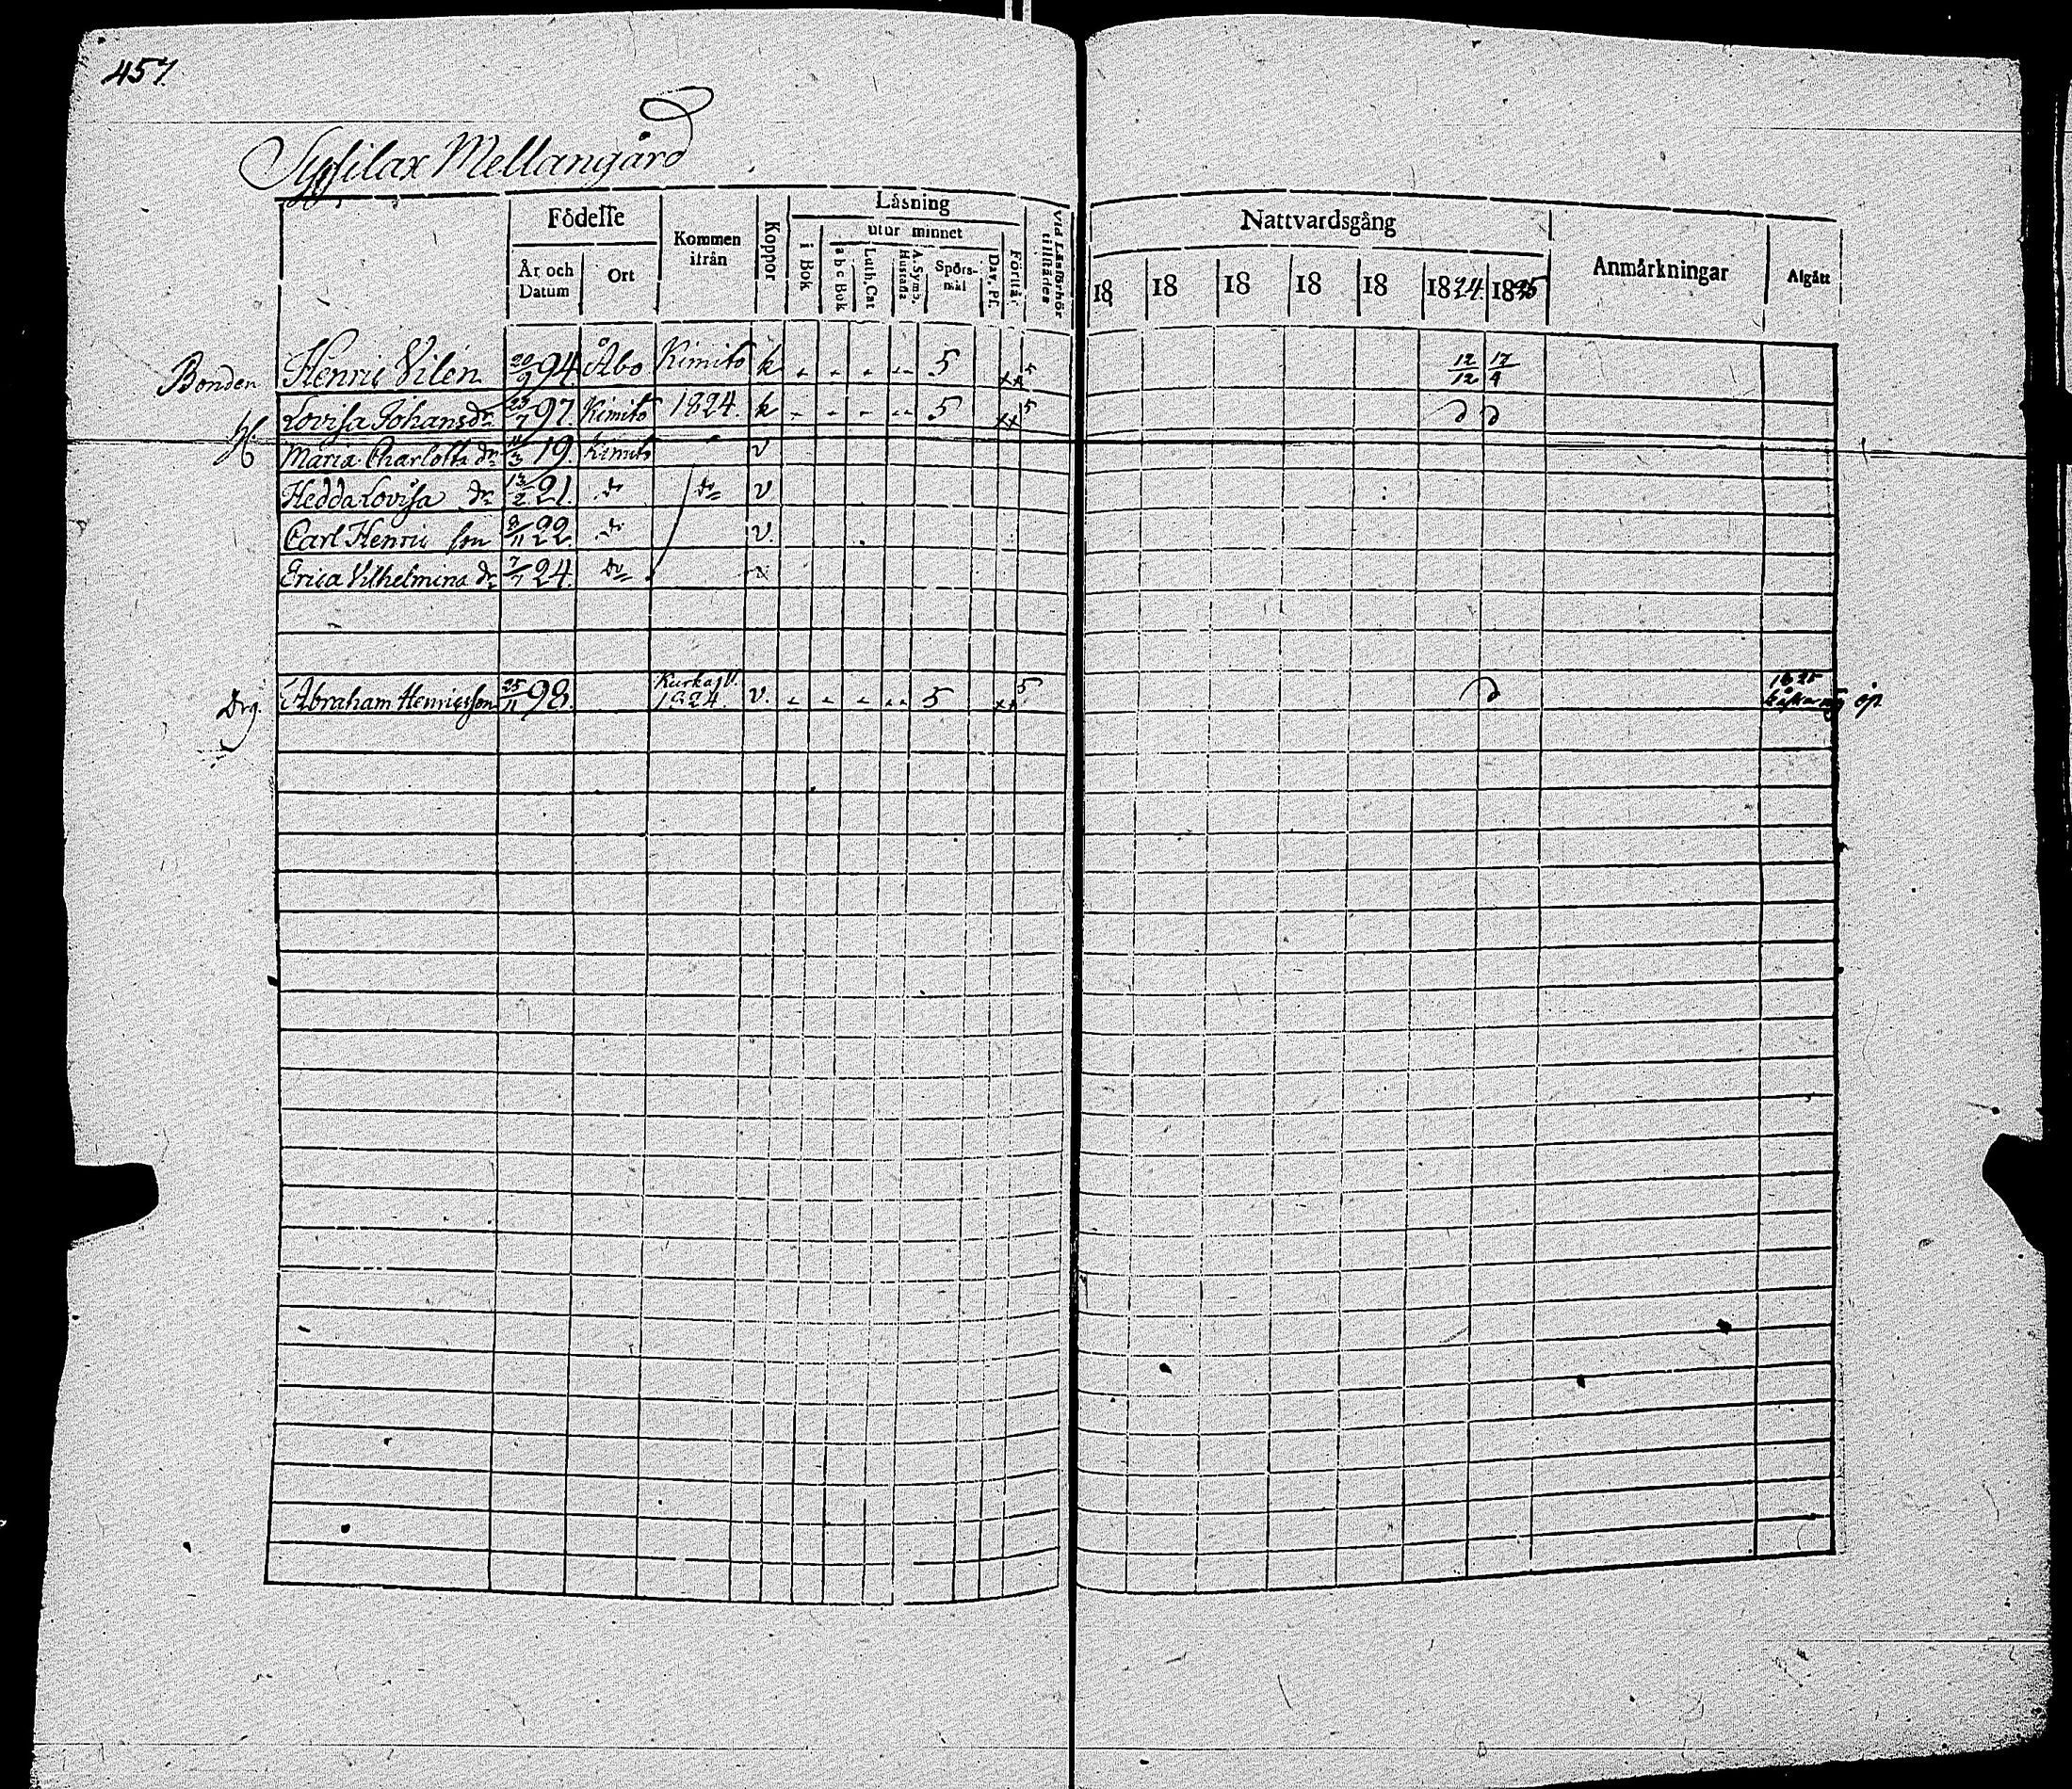 457.
Mellangård
Födelse Kommen ifrån Koppor Läsning Vid Läsförhör tillstädes Nattvardsgång Anmärkningar Afgått
utur minnet
År och Datum Ort i Bok a b c Bok Luth. Cat A. Symb. Hustafla Spörs-mål Dav. Ps. Förstår 18 18 18 18 18 1824. 1825
Bonden Henric Vilén 20/9 94 Åbo Kimito k 5 xx 5 12/12 17/4
H. Lovisa Johansdr 23/7 97. Kimito 1824. k 5 xx 5
Maria Charlotta dr 11/3 19. Kimito v
Hedda Lovisa dr 13/2 21. do do v
Carl Henric son 9/11 22. do v.
Erica Vilhelmina dr 7/7 24. do
Drg. Abraham Henricsson 25/11 98. 1824. v. 5 xx 5 1825